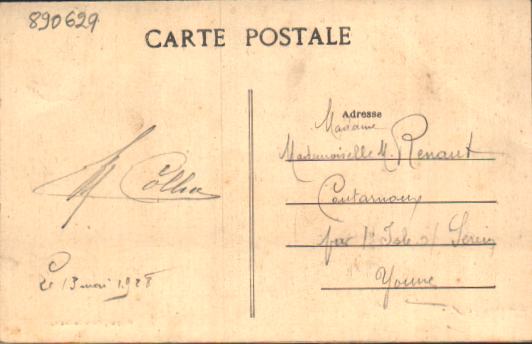 890629
CARTE POSTALE
Adresse
Madame
Mademoiselle M. Renaut
Coutarnoux
par l'Isle s/ Serein
Yonne
Le 13 mai 1928